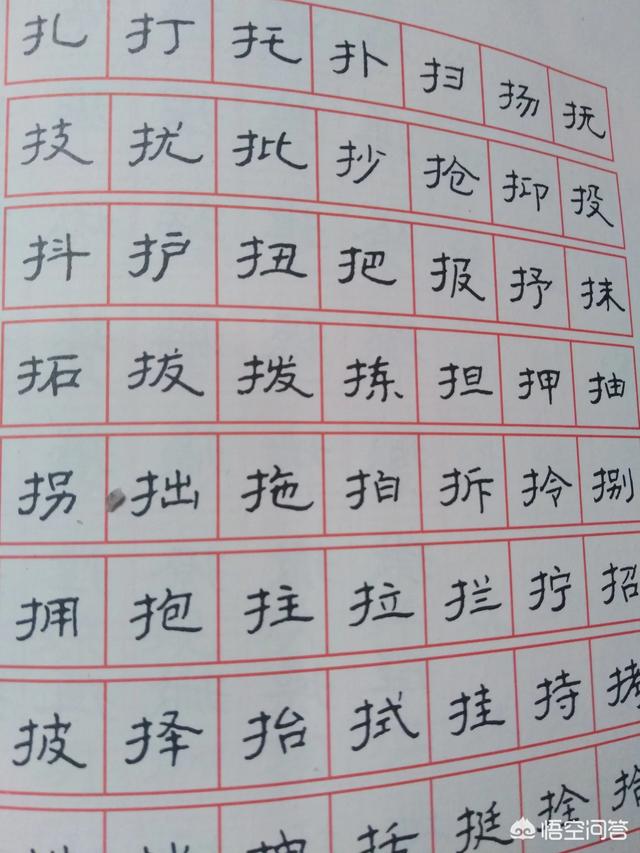 扎打托扑扫扬抚
技扰批抄抢抑投
抖护扭把报抒抹
拓拔拨拣担押抽
拐拙拖拍拆拎捌
拥抱拄拉拦拧招
披择抬拭挂持拷
括挺拴拾
悟空问答